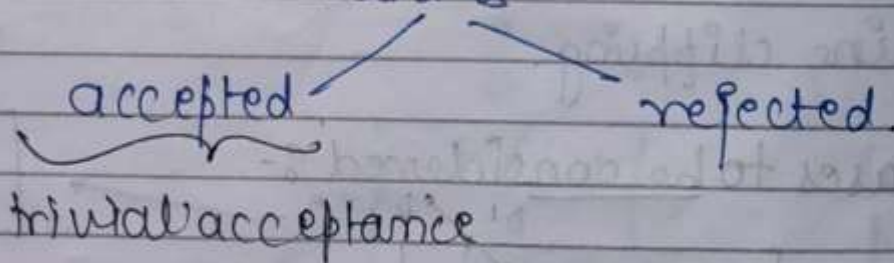 accepted rejected.
trivial acceptance